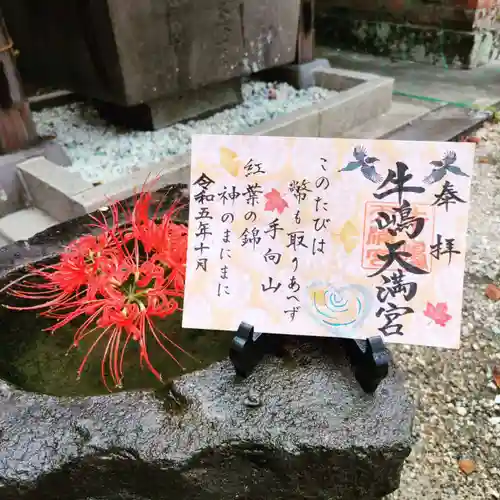 奉拝
牛嶋天満宮
このたびは
幣も取りあへず
手向山
紅葉の錦
神のまにまに
令和五年十月